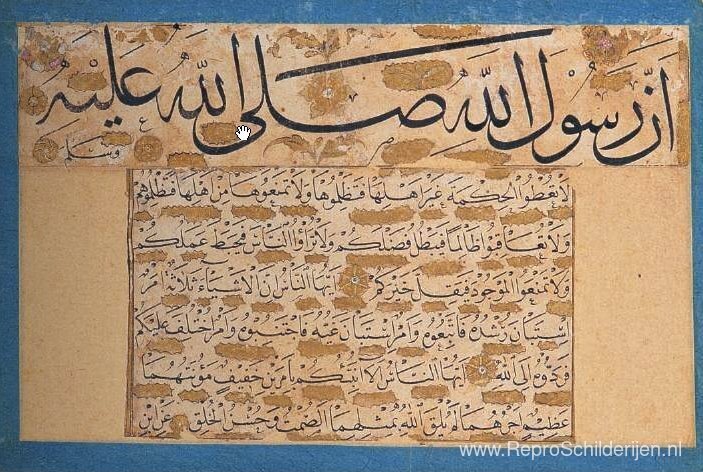 ان رسول الله صلى الله عليه
وسلم
لا تعطوا الحكمة غير اهلها فتظلموها ولا تمنعوها من اهلها فتظلموهم
ولا تعاقبوا ظالما فيبطل فضلكم ولا تراؤا الناس فيحبط عملكم
ولا تمنعوا الموجود فيقل خيركم ايها الناس ان الاشياء ثلاثة امر
استبان رشده فاتبعوه وامر استبان غيه فاجتنبوه وامر اختلف عليكم
فردوه الى الله ايها الناس الا انبئكم بامرين خفيف مؤنتهما
عظيم اجرهما لم يلق الله بمثلهما الصمت وحسن الخلق
www.ReproSchilderijen.nl